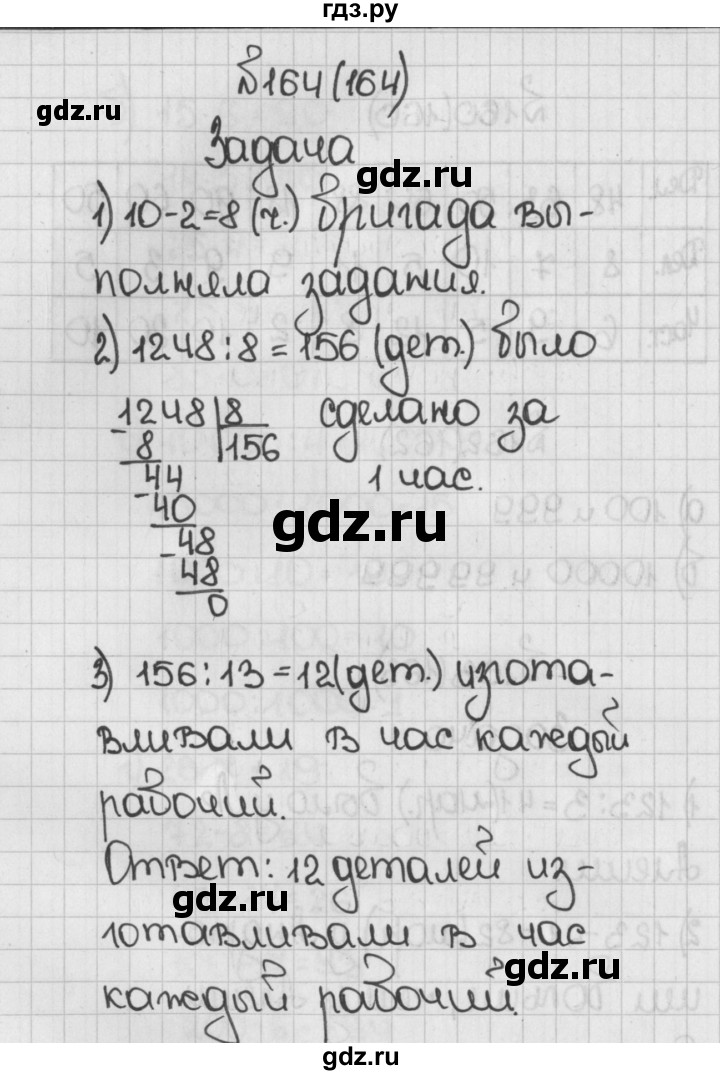 гдз.ру
№164(164)
gdz.ru
Задача
gdz.ru
1) 10-2=8 (ч.) бригада вы-
полняла задания.
2) 1248:8=156 (дет.) было
1248 8 сделано за
- 8 156 1 час.
- 44
40
gdz.ru
- 48
48
0
3) 156:13=12(дет.) изгота-
вливали в час каждый
рабочий.
Ответ: 12 деталей из-
gdz.ru
готавливали в час
gdz.ru
каждый рабочий.
gdz.ru